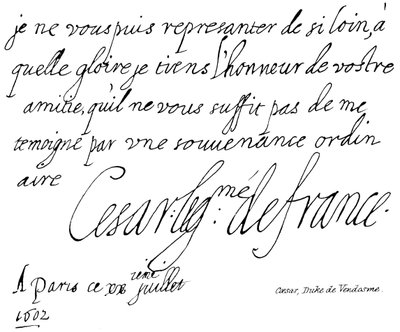 je ne vous puis represanter de si loin, à
quelle gloire je tiens l'honneur de vostre
amitie, qu'il ne vous suffit pas de me
temoigne par vne souuenance ordin
aire
Cesar: Leg.mé de france.
A Paris ce xxieme juillet
1602
Cæsar, Duke de Vendosme.